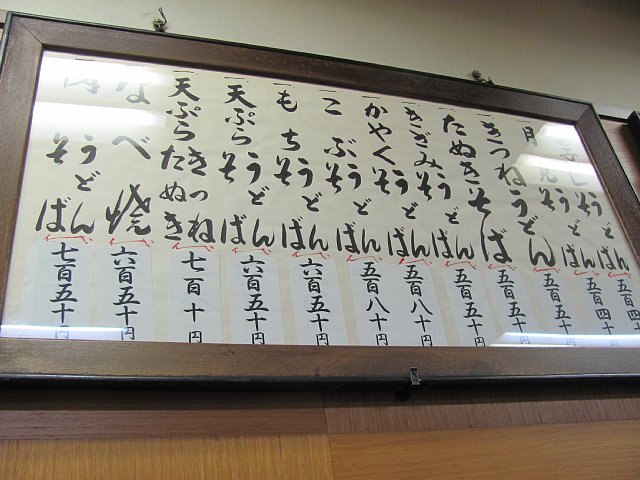 うどん そば 五百四十
うどん そば 五百四十
一 月見 うどん そば 五百五十円
一 きつねうどん 五百五十円
一 たぬきそば 五百五十円
一 きざみ うどん そば 五百八十円
一 かやく うどん そば 五百八十円
一 こぶ うどん そば 五百八十円
一 もち うどん そば 六百五十円
一 天ぷら うどん そば 六百五十円
一 天ぷら きつね たぬき 七百十円
なべ焼 六百五十円
肉 うどん そば 七百五十円